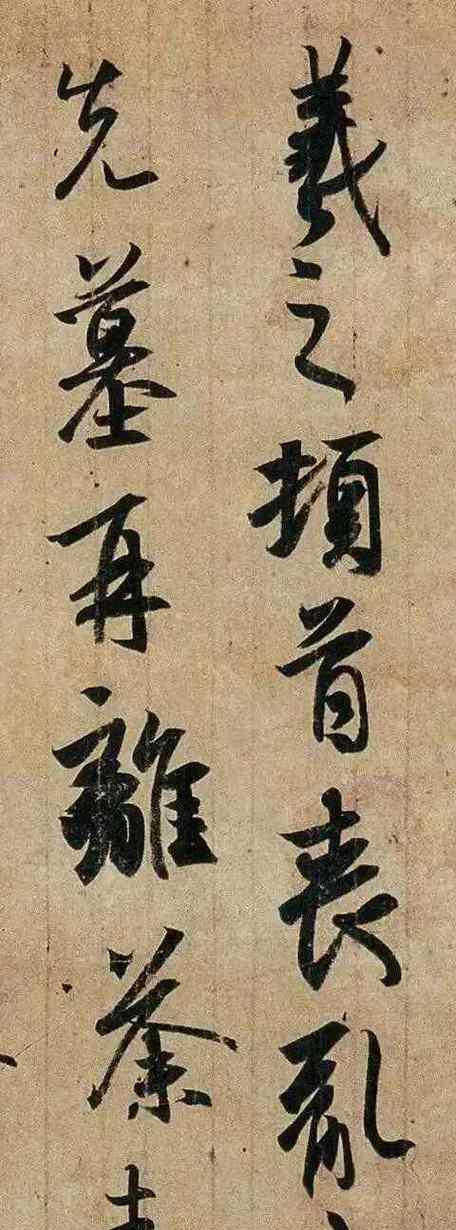 羲之頓首喪亂
先墓再離荼